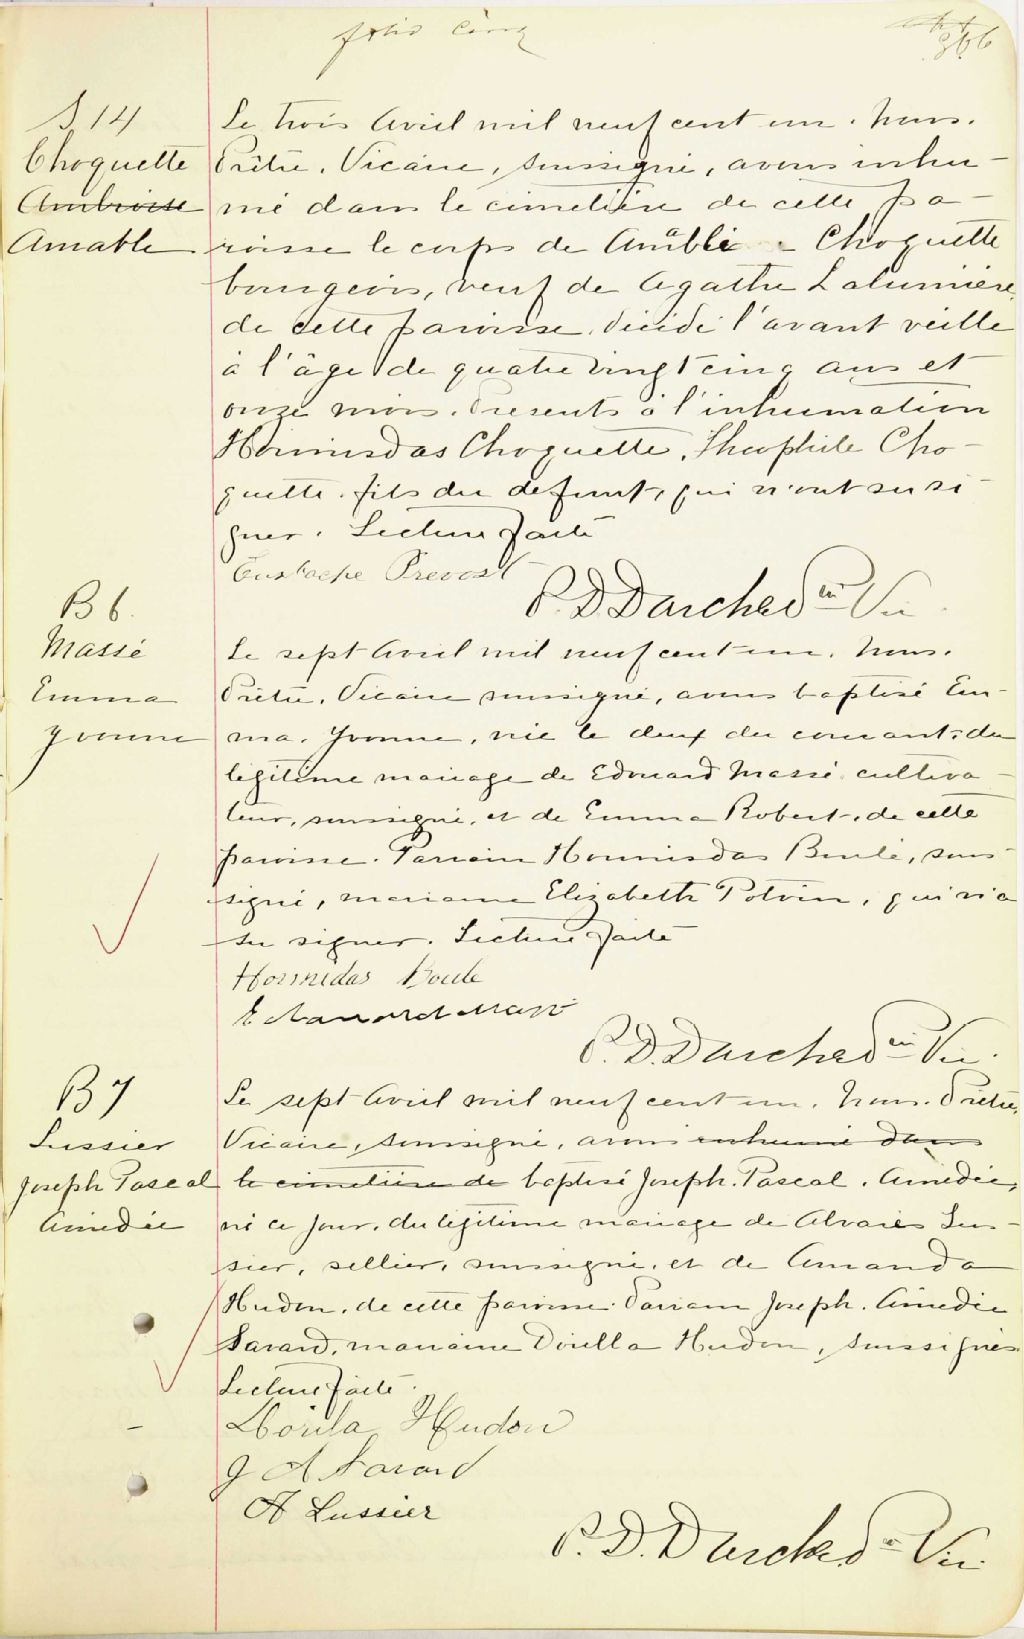 folio cinq
366
S 14
Choquette
Ambroise
Amable
Le trois Avril mil neuf cent un. Nous.
Prêtre, Vicaire, soussigné, avons inhu-
mé dans le cimetière de cette pa-
roisse le corps de Amable Choquette
bourgeois, veuf de Agathe Lalumière,
de cette paroisse, décédé l'avant veille
à l'âge de quatre vingt cinq ans et
onze mois. Présents à l'inhumation
Hormisdas Choquette, Théophile Cho-
quette. fils du défunt, qui n'ont su si-
gner. Lecture faite
Eustache Prevost
P. D. Darche Vic.
B 6.
Massé
Emma
Yvonne
Le sept Avril mil neuf cent un. Nous.
Prêtre, Vicaire soussigné, avons baptisé Em-
ma. Yvonne, née le deux du courant, du
légitime mariage de Edouard Massé cultiva-
teur, soussigné, et de Emma Robert, de cette
paroisse. Parrain Hormisdas Boulé, sous-
signé, marraine Elizabeth Potvin, qui n'a
su signer. Lecture faite
Hormidas Boule
Edouard Massé
P. D. Darche Vic.
B 7
Lussier
Joseph Pascal
Amédée
Le sept Avril mil neuf cent un. Nous. Prêtre,
Vicaire, soussigné, avons inhumé dans
le cimetière de baptisé Joseph. Pascal. Amédée,
né ce jour, du légitime mariage de Alvarès Lus-
sier, sellier, soussigné, et de Amanda
Hudon, de cette paroisse. Parrain Joseph. Amédée
Savard, marraine Dorilla Hudon, soussignés
Lecture faite.
Dorila Hudon
J A Savard
A Lussier
P. D. Darche Vic.